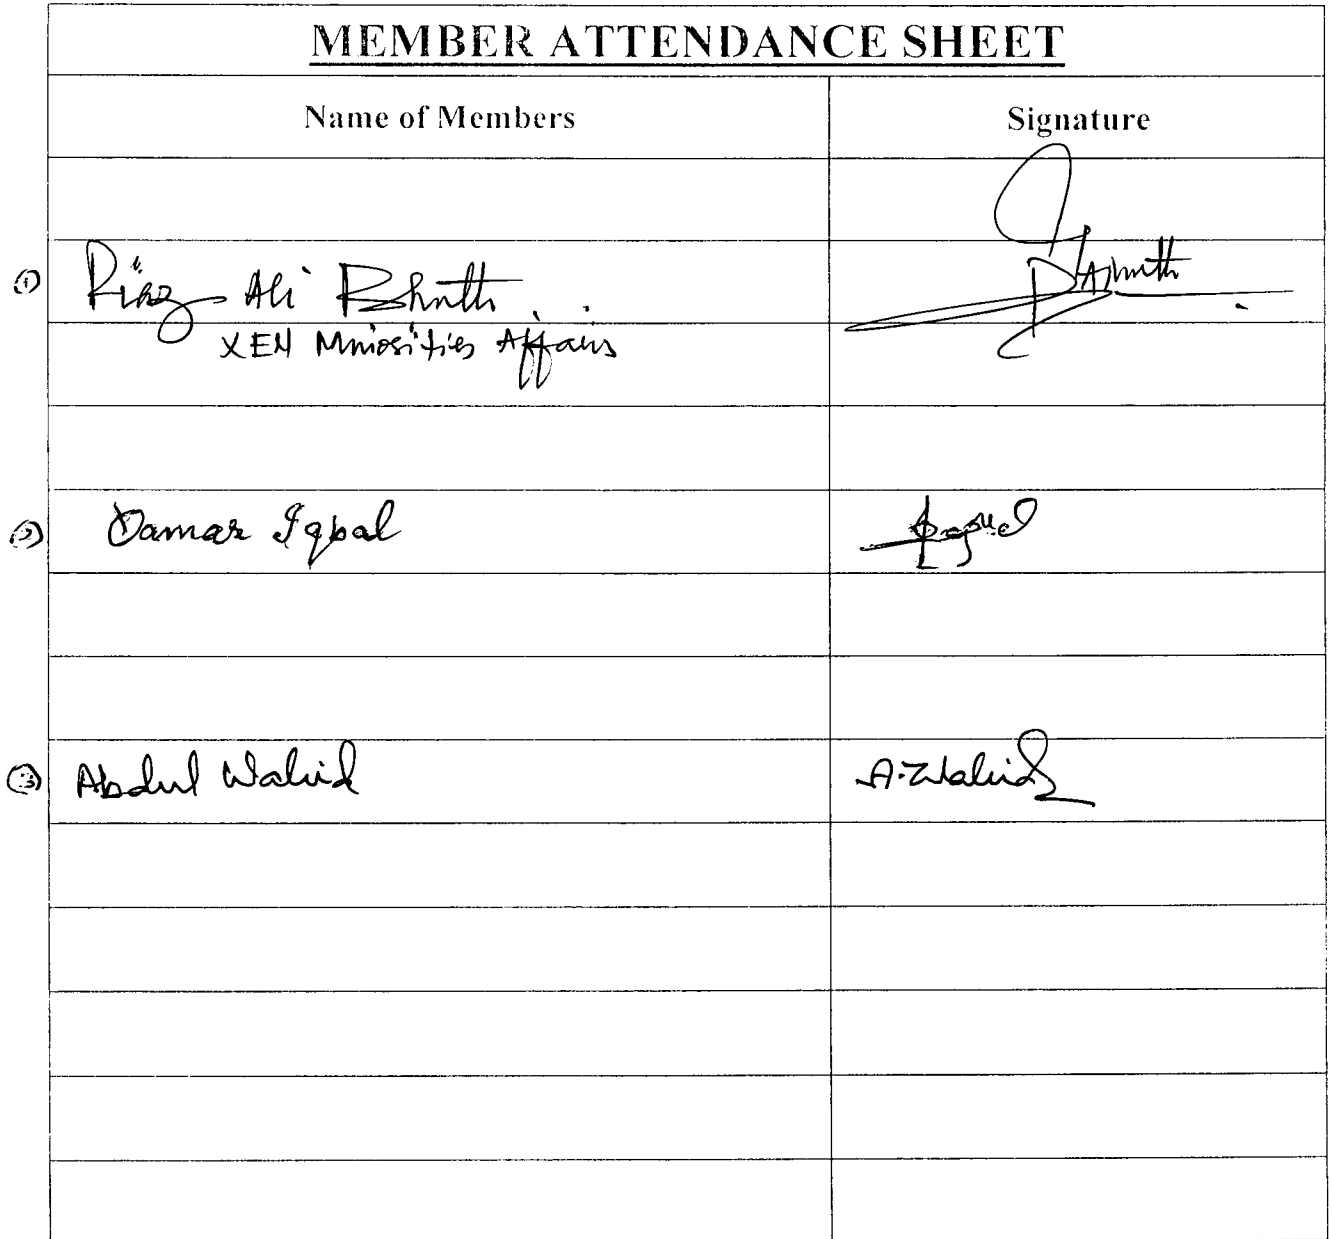 MEMBER ATTENDANCE SHEET
Name of Members Signature
① Riaz Ali Bhutti
XEN Minosities Affairs
② Qamar Iqbal
③ Abdul Wahid A.Wahid